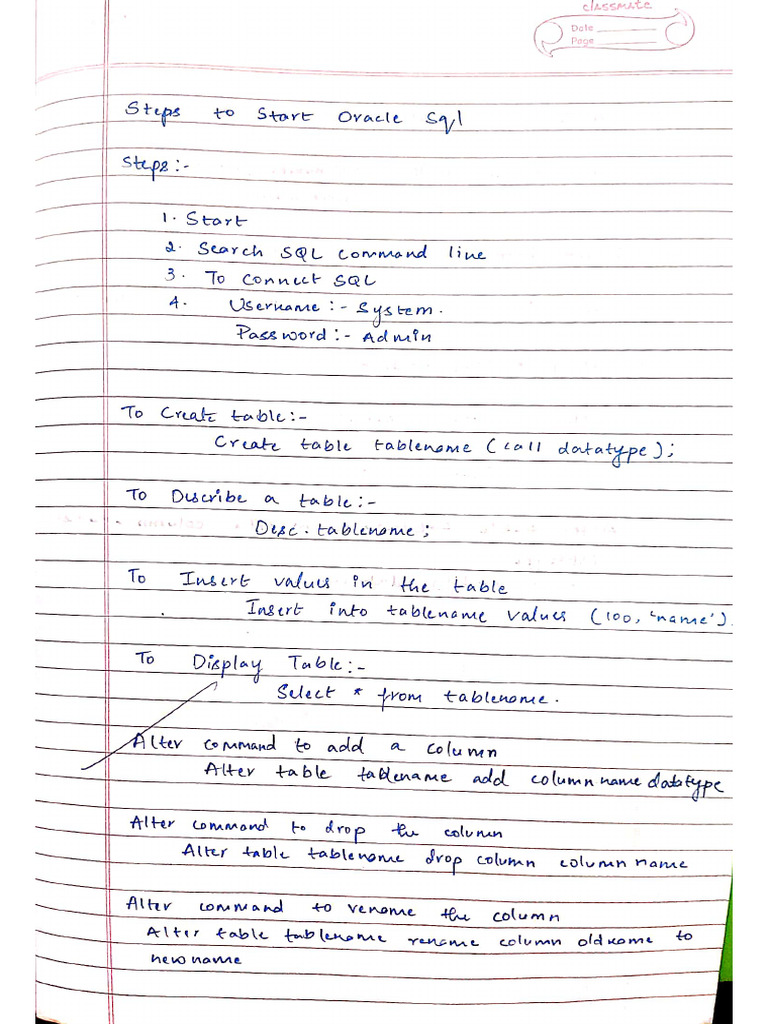 classmate
Date
Page
Steps to Start Oracle Sql
Steps:-
1. Start
2. Search SQL command line
3. To Connect SQL
4. Username:- System.
Password:- Admin
To Create table:-
Create table tablename (call datatype);
To Discribe a table:-
Desc. tablename;
To Insert values in the table
Insert into tablename values (100, 'name').
To Display Table:-
Select * from tablename.
Alter command to add a column
Alter table tablename add column name datatype
Alter command to drop the column
Alter table tablename drop column column name
Alter command to rename the column
Alter table tablename rename column oldname to
newname